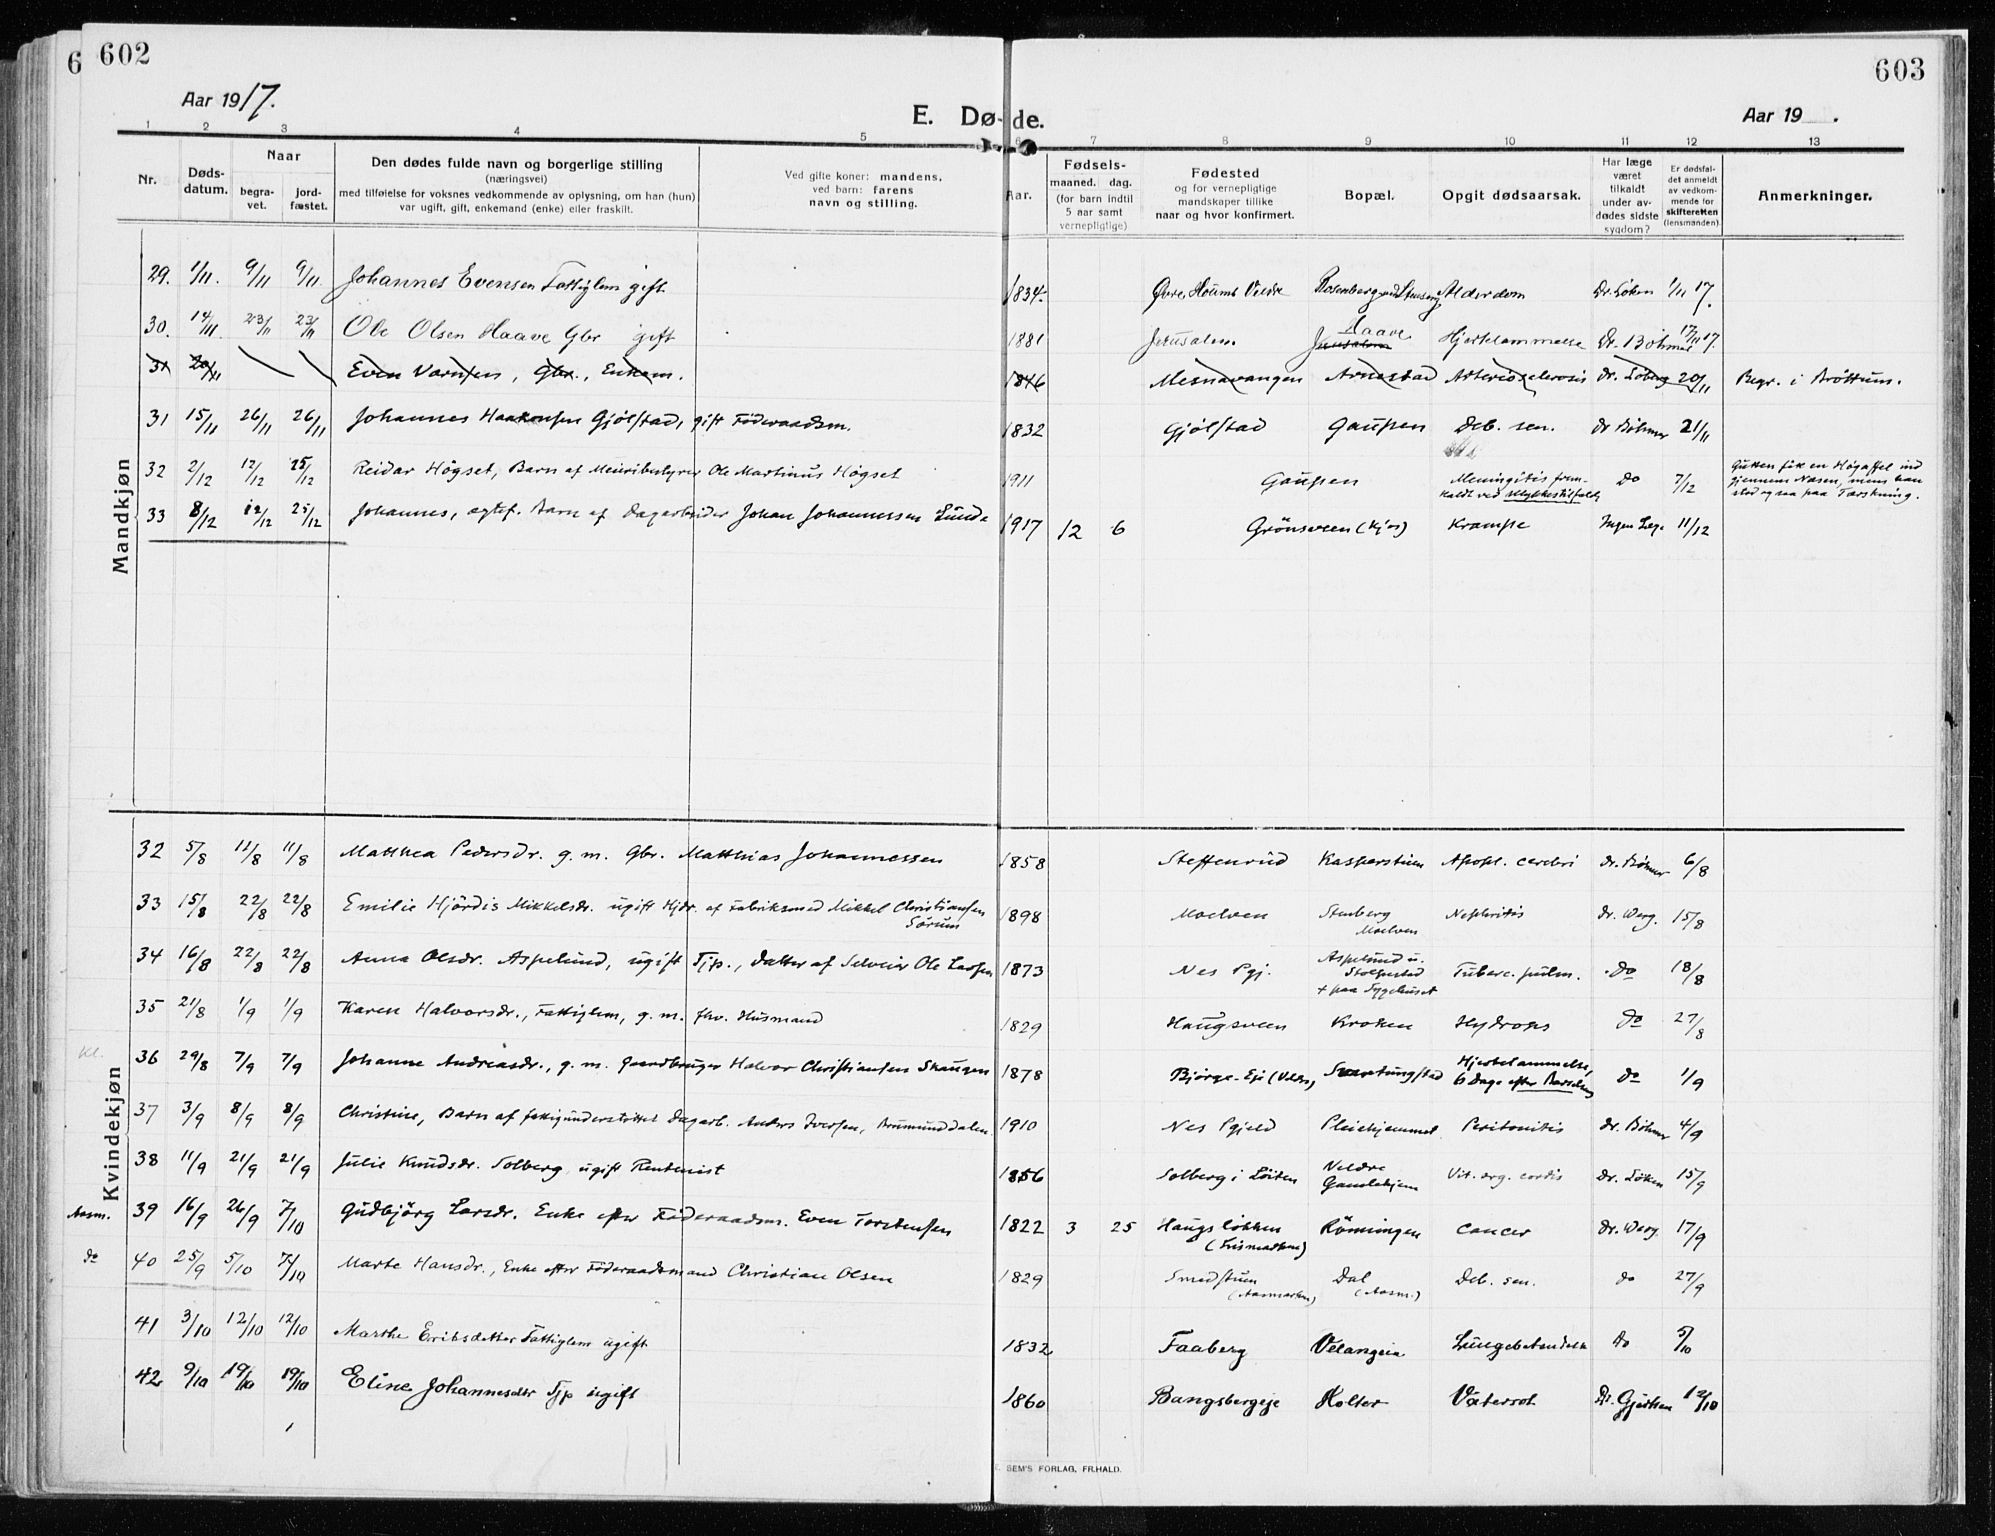 602
603
6
Aar 1917.
E. Døde.
Aar 19 .
1 2 3 4 5 6 7 8 9 10 11 12 13
Nr.
Døds-
datum.
Naar
begra-
vet.
jord-
fæstet.
Den dødes fulde navn og borgerlige stilling
(næringsvei)
med tilføielse for voksnes vedkommende av oplysning, om han (hun)
var ugift, gift, enkemand (enke) eller fraskilt.
Ved gifte koner: mandens,
ved barn: farens
navn og stilling.
Aar.
Fødsels-
maaned. dag.
(for barn indtil
5 aar samt
vernepligtige)
Fødested
og for vernepligtige
mandskaper tillike
naar og hvor konfirmert.
Bopæl.
Opgit dødsaarsak.
Har læge
været
tilkaldt
under av-
dødes sidste
sygdom?
Er dødsfal-
det anmeldt
av vedkom-
mende for
skifteretten
(lensmanden).
Anmerkninger.
Mandkjøn
29. 1/11. 9/11 9/11 Johannes Evensen Fattiglem gift 1834. Øvre Houms Veldre Rosenberg Alderdom Dr. Løken 1/11 17.
30. 14/11 23/11 23/11 Ole Olsen Haave Gbr gift 1881 Jerusalem Jerusalem Haave Hjertelammelse Dr. Böhmer 17/11 17.
31 20/11 Even Varnsen, Gbr., Enkem. 1846 Mesnavangen Arnestad Arteriosclerosis dr. Löberg 20/11 Begr. i Bröttum.
31 15/11 26/11 26/11 Johannes Haakensen Gjölstad, gift Föderaadsm. 1832 Gjölstad Gaupen Deb. sen. dr Böhmer 21/11
32 2/12 12/12 25/12 Reidar Högset, Barn af Meieribestyrer Ole Martinus Högset 1911 Gaupen Meningitis frem-
kaldt ved Ulykkestilfælde do 7/12 Gutten fik en Högaffel ind
gjennem Næsen, mens han
stod og saa paa Tærskning.
33 8/12 12/12 25/12 Johannes, egtef. Barn af Dagarbeider Johan Johannessen Lunde 1917 12 6 Grönsveen (Kjos) Krampe Ingen Læge 11/12
Kvindekjøn
32 5/8 11/8 11/8 Mathea Pedersdr. g. m. Gbr. Matthias Johannessen 1858 Steffenrud Kasperstuen Apopl. cerebri dr. Böhmer 6/8
33 15/8 22/8 22/8 Emilie Hjördis Mikkelsdr. ugift Hjdr. af Fabriksmed Mikkel Christiansen
Sörum 1898 Moelven Stenberg
Moelven Nephritis dr. Werg. 15/8
34 16/8 22/8 22/8 Anna Olsdr. Aspelund, ugift Tjp., datter af Selveier Ole Larsen 1873 Nes Pgj. Aspelund u.
Stolpestad
+ paa Sygehuset Tuberc. pulm. do 18/8
35 21/8 1/9 1/9 Karen Halvorsdr., Fattiglem, g. m. fhv. Husmand 1829 Haugsveen Kroken Hydrops do 27/8
Kl. 36 29/8 7/9 7/9 Johanne Andreasdr., g. m. Gaardbruger Halvor Christiansen Skaugen 1878 Bjørge-Eje (Veldre) Svartungstad Hjertelammelse,
6 Dage efter Barselseng do 1/9
37 3/9 8/9 8/9 Christine, Barn af fattigunderstöttet Dagarb. Anders Iversen, Brumunddalen 1910 Nes Pgjeld Pleiehjemmet Peritonitis dr. Böhmer 4/9
38 11/9 21/9 21/9 Julie Knudsdr. Solberg, ugift Rentenist 1856 Solberg i Löiten Veldre
Gamlehjem Vit. org. cordis dr. Löken 15/9
Aasm. 39 16/9 26/9 7/10 Gudbjörg Larsdr. Enke efter Föderaadsm. Even Torstensen 1822 3 25 Haugsløkken
(Lismarken) Rönningen Cancer dr. Werg. 17/9
do 40 25/9 5/10 7/10 Marte Hansdr., Enke efter Föderaadsmand Christian Olsen 1829 Smedstuen
(Aasmarken) Dal
(Aasm.) Deb. sen. do 27/9
41 3/10 12/10 12/10 Marthe Eriksdatter Fattiglem ugift 1832 Faaberg Velangeia Lungebetændelse do 5/10
42 9/10 19/10 19/10 Eline Johannesdtr Tjp ugift 1860 Bangsbergeje Holter Vatersot Dr. Gjertsen 12/10
SEM'S FORLAG, FR.HALD.